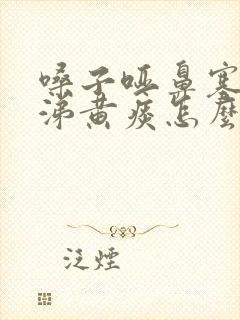 嗓子哑鼻塞
涕黄痰怎麽
泛煙